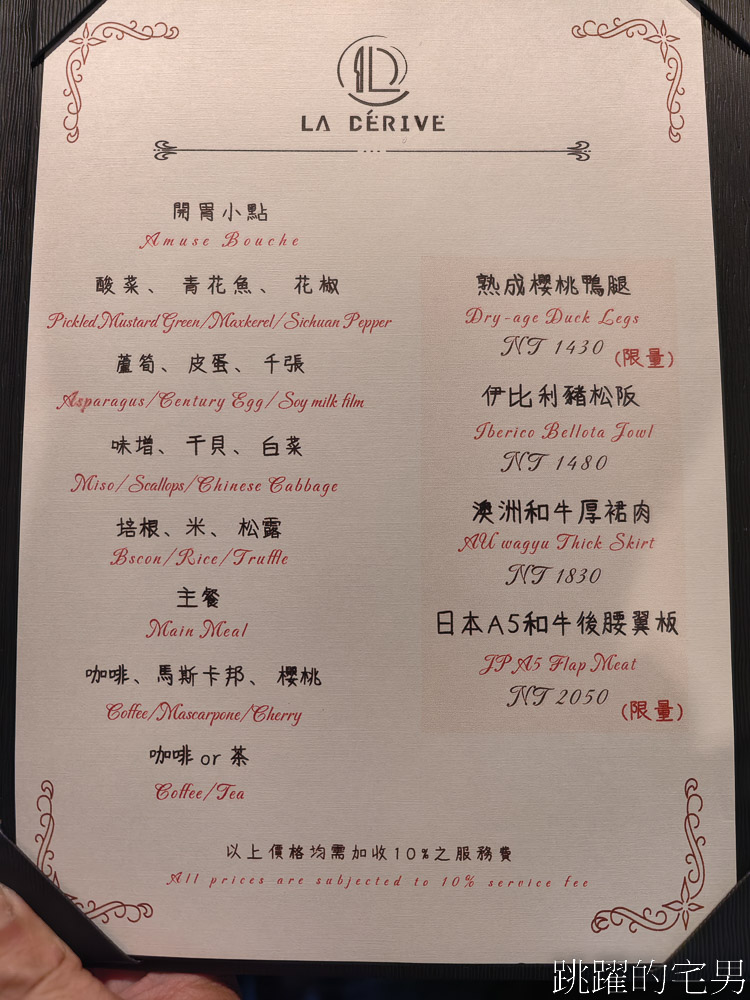 LA DÉRIVE
開胃小點
Amuse Bouche
酸菜、 青花魚、 花椒
Pickled Mustard Green/Maxkerel/Sichuan Pepper
蘆筍、 皮蛋、 千張
Asparagus/Century Egg/Soy milk film
味增、 干貝、 白菜
Miso/Scallops/Chinese Cabbage
培根、米、 松露
Bscon/Rice/Truffle
主餐
Main Meal
咖啡、馬斯卡邦、 櫻桃
Coffee/Mascarpone/Cherry
咖啡 or 茶
Coffee/Tea
熟成櫻桃鴨腿
Dry-age Duck Legs
NT 1430 (限量)
伊比利豬松阪
Iberico Bellota Jowl
NT 1480
澳洲和牛厚裙肉
AU wagyu Thick Skirt
NT 1830
日本A5和牛後腰翼板
JP A5 Flap Meat
NT 2050 (限量)
以上價格均需加收10%之服務費
All prices are subjected to 10% service fee
跳躍的宅男